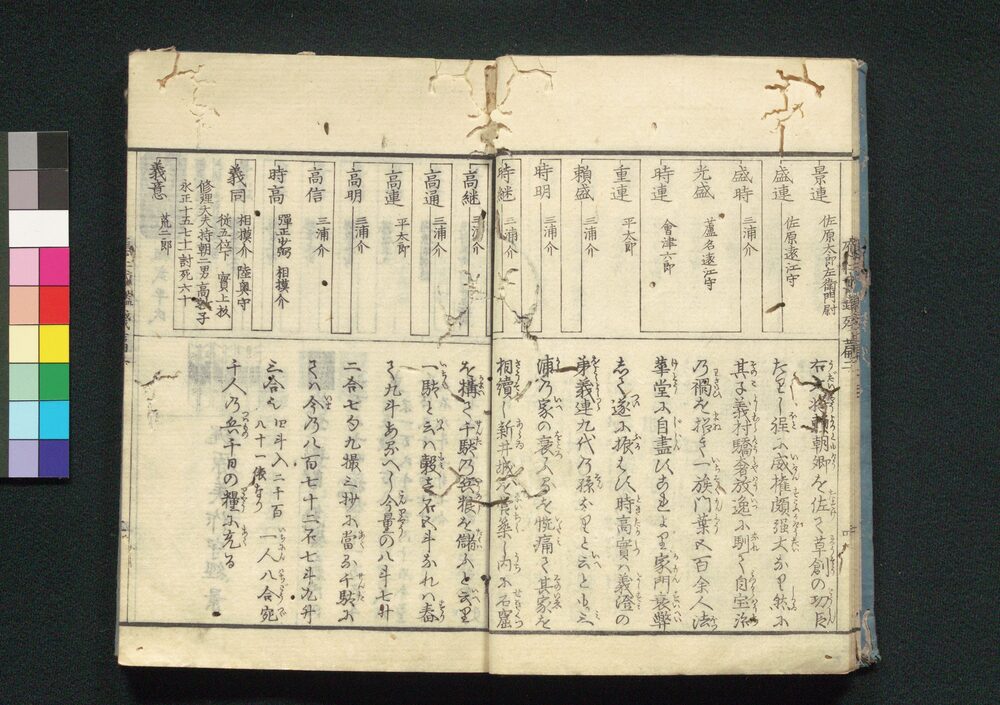 景連 佐原太郎左衛門尉
盛連 佐原遠江守
盛時 三浦介
光盛 蘆名遠江守
時連 會津六郎
重連 平太郎
頼盛 三浦介
時明 三浦介
時継 三浦介
高継 三浦介
高通 三浦介
高連 平太郎
高明 三浦介
高信 三浦介
時高 彈正少弼 相摸介
義同 相摸介 陸奥守
従五位下 實上杦
修理大夫持朝二男高救子
義意 荒二郎
永正十五七十一討死六十
右大将頼朝卿を佐て草創の功臣
たり 後に威權頗强大なり 然に
其子義村驕奢放逸に馴て自宝治
乃禍を招て一族門葉五百余人法
華堂に自盡しぬ是より家門衰弊
して遂に振はし時高實は義澄の
弟義連九代乃孫なりと云とも三
浦乃家の衰ふるを慨痛て其家を
相續し新井城を営築し内に石窟
を構て千駄乃兵粮を儲ふと云里
一駄と云ハ穀壱石五斗なれハ舂
て九斗あるへし今量の八斗七升
二合七勺九撮三抄に當る千駄に
てハ今乃八百七十二石七斗九升
三合也 四斗入二千百
八十一俵なり 一人八合宛
千人乃兵千日の糧に充る